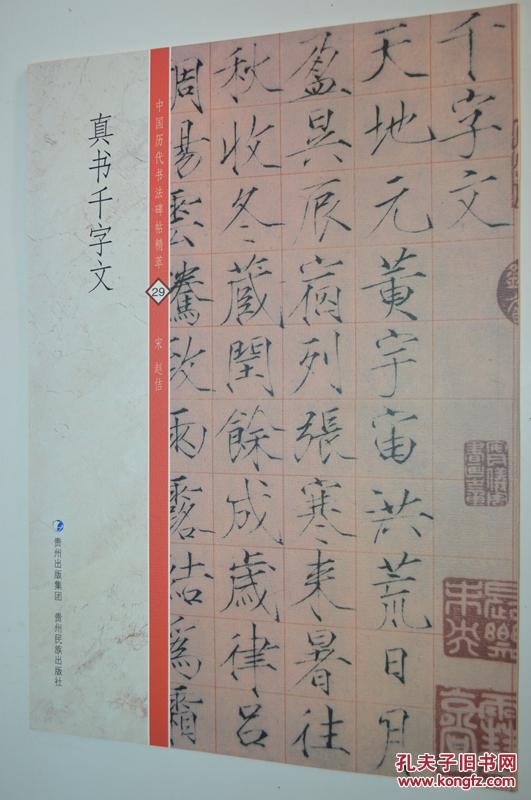 真书千字文
中国历代书法碑帖精萃
29
宋 赵佶
贵州出版集团 贵州民族出版社
千字文
天地元黄宇宙洪荒日月
盈昃辰宿列張寒来暑往
秋收冬蔵閏餘成歳律吕
調陽雲騰致雨露結為霜
長樂
孔夫子旧书网
www.kongfz.com